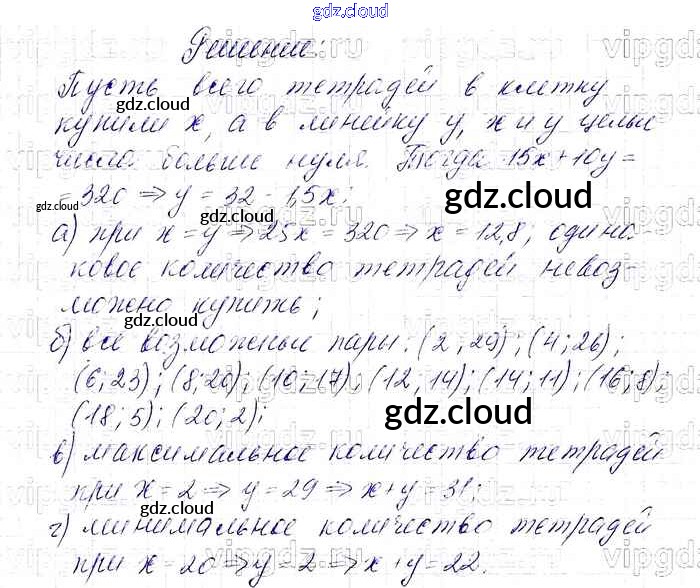 gdz.cloud
Решение:
Пусть всего тетрадей в клетку
купили x, а в линейку y, x и y целые
числа больше нуля. Тогда 15x+10y=
=320 ⇒ y = 32 - 1,5x;
а) при x=y ⇒ 25x = 320 ⇒ x = 12,8; одина-
ковое количество тетрадей невоз-
можно купить;
б) все возможные пары: (2; 29); (4; 26);
(6; 23); (8; 20); (10; 17); (12; 14); (14; 11); (16; 8);
(18; 5); (20; 2);
в) максимальное количество тетрадей
при x = 2 ⇒ y = 29 ⇒ x+y = 31;
г) минимальное количество тетрадей
при x = 20 ⇒ y = 2 ⇒ x+y = 22.
gdz.cloud
gdz.cloud
gdz.cloud
gdz.cloud
gdz.cloud
gdz.cloud
gdz.cloud
gdz.cloud
gdz.cloud